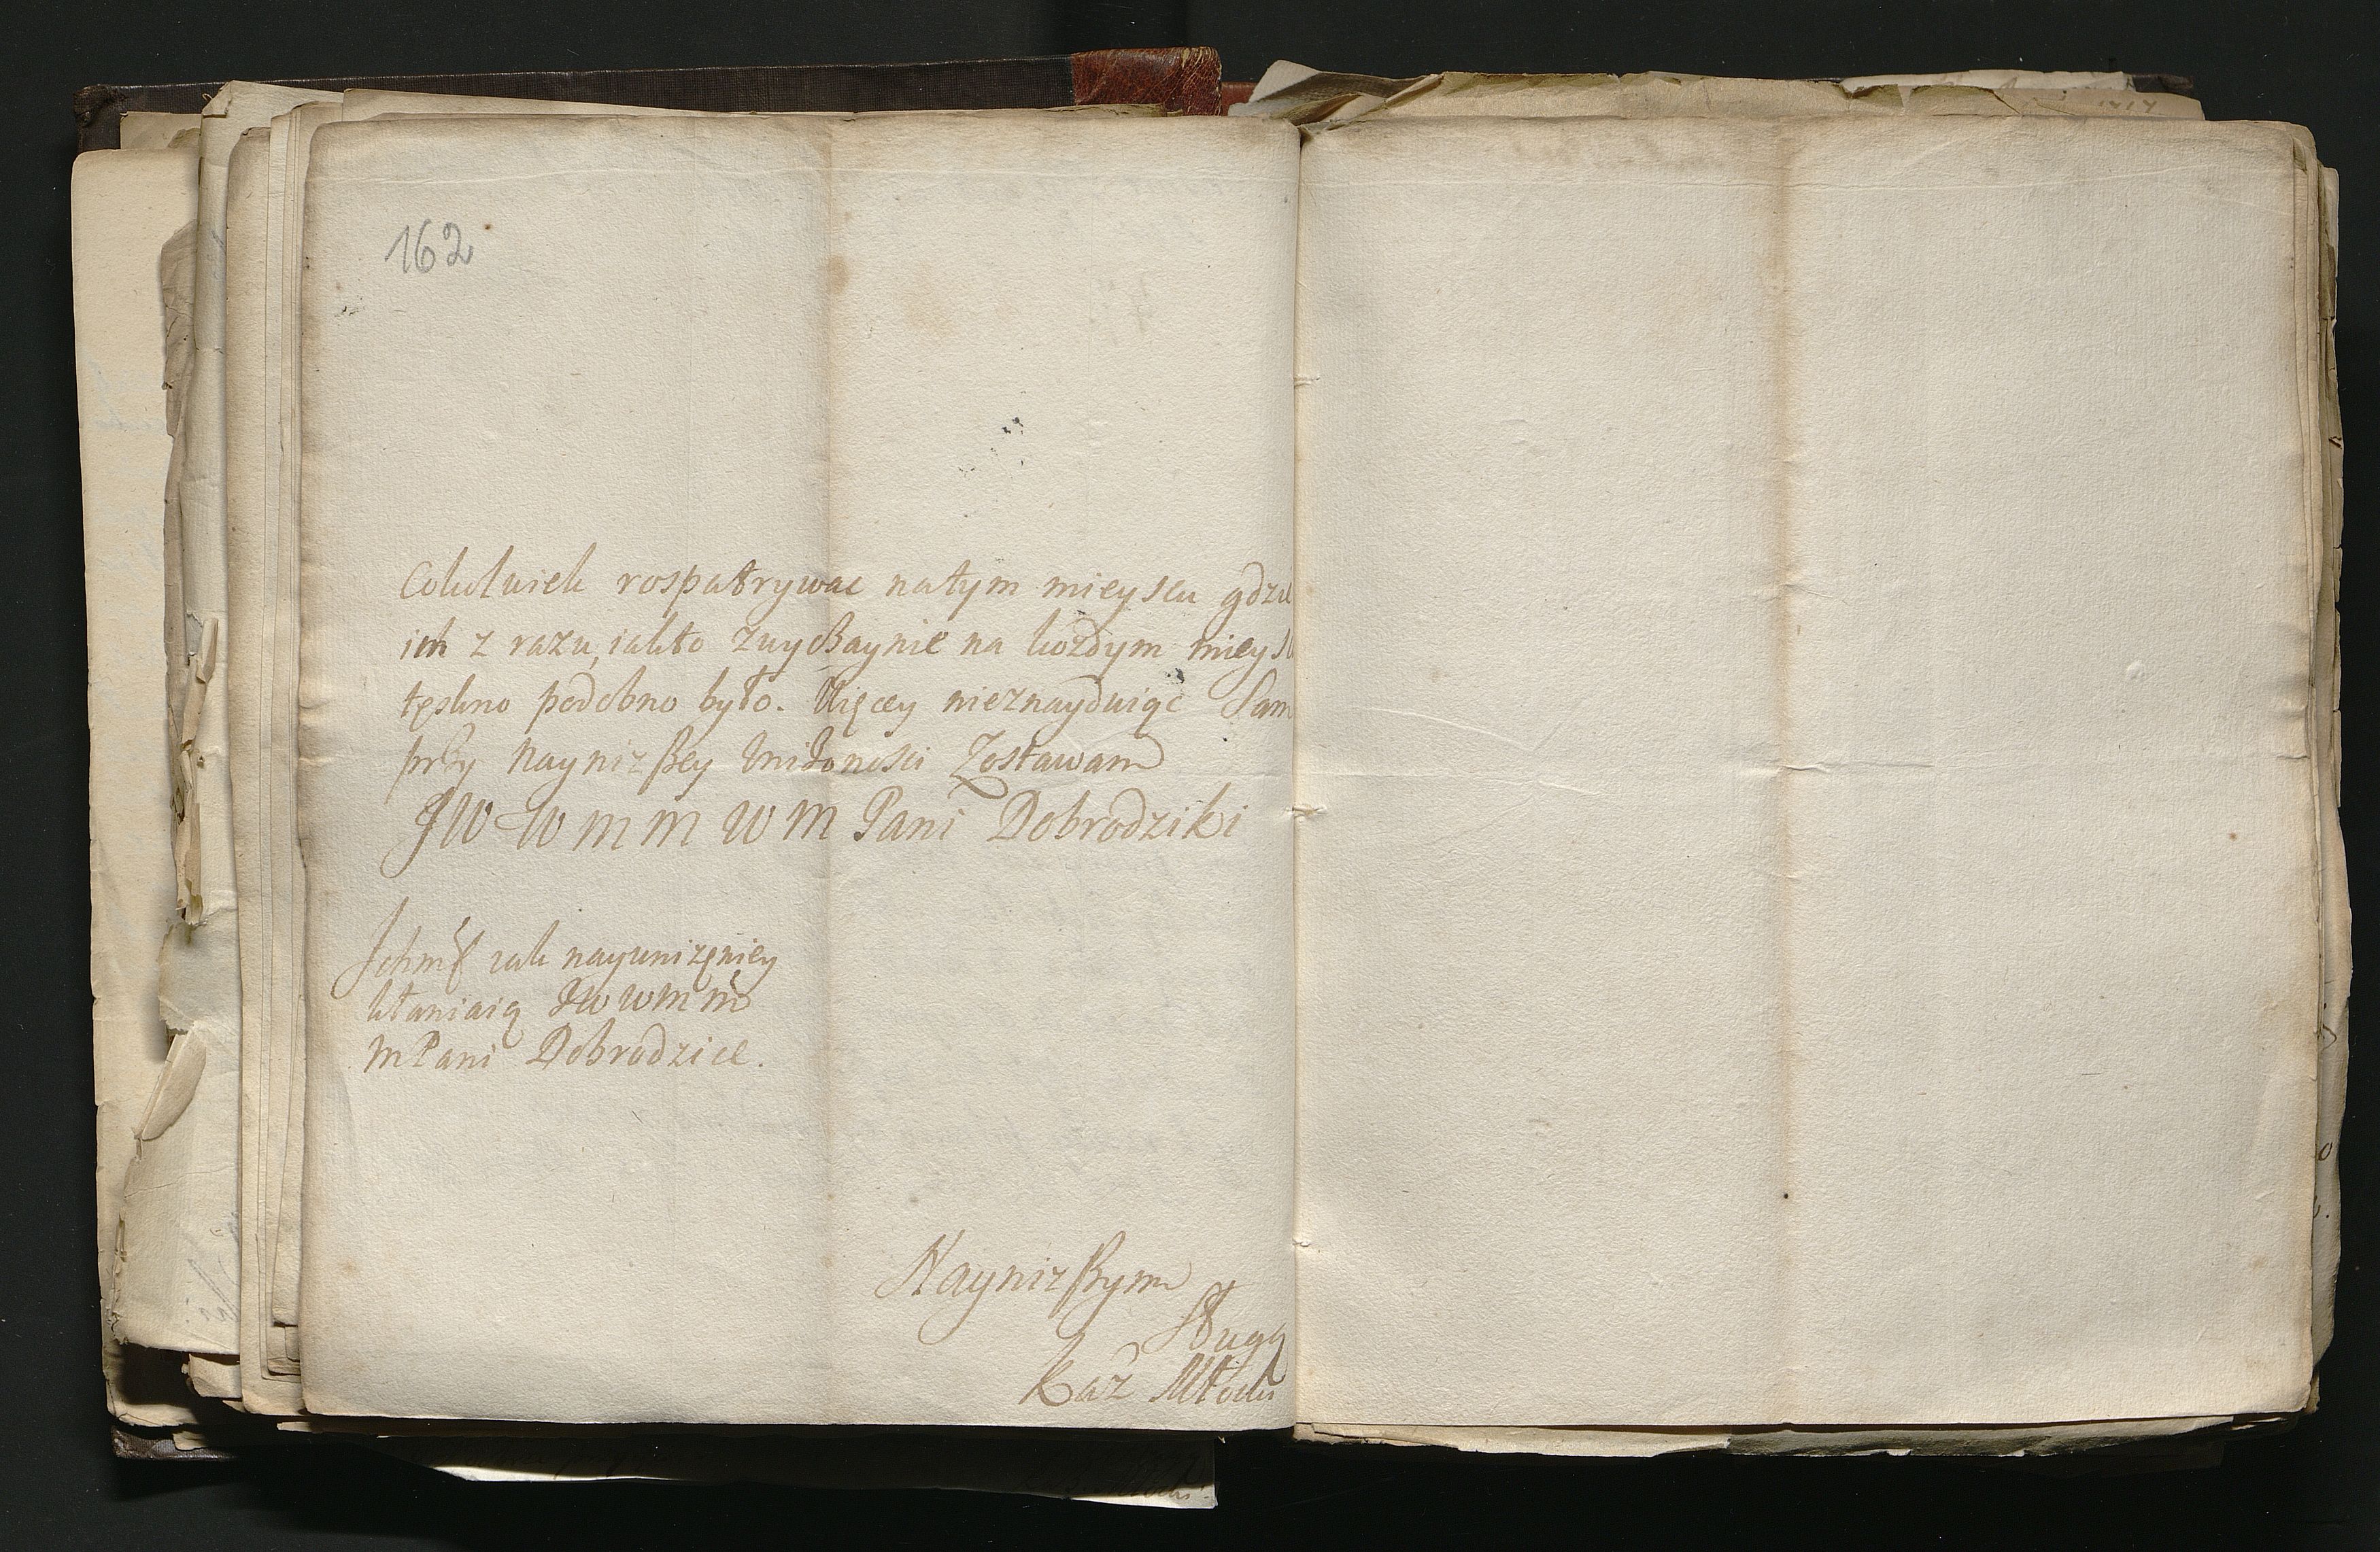 162
Cokolwiek rospatrywac natym mieyscu gdzie
ich z razu, iakto zwyczaynie na kożdym mieysc
tęskno podobno było. Więcey nieznayduiąc Sam
przy Nayniższey uniżonosci Zostawam
JW W M M W M Pani Dobrodziki
Ichmść iak nayuniżęniey
kłaniaią JW W M M
M Pani Dobrodzice.
Nayniższym
Sługą
Kaź Młocki